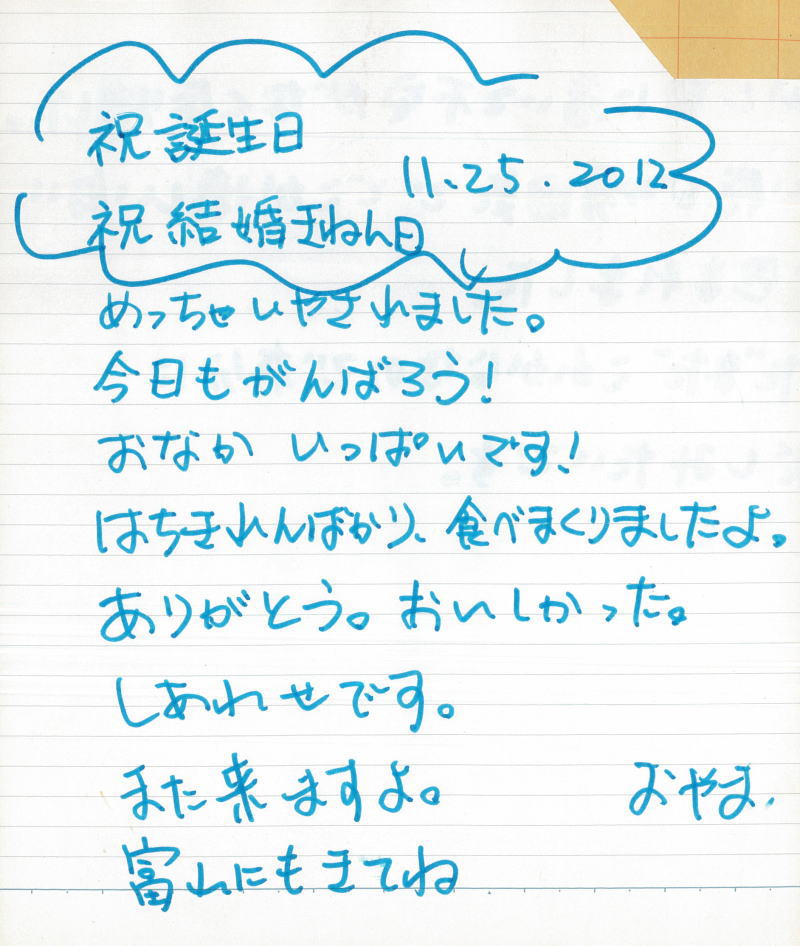 祝 誕生日
11.25.2012
祝 結婚きねん日
めっちゃいやされました。
今日もがんばろう!
おなか いっぱいです!
はちきれんばかり、食べまくりましたよ。
ありがとう。おいしかった。
しあわせです。
また来ますよ。 おやま.
富山にもきてね